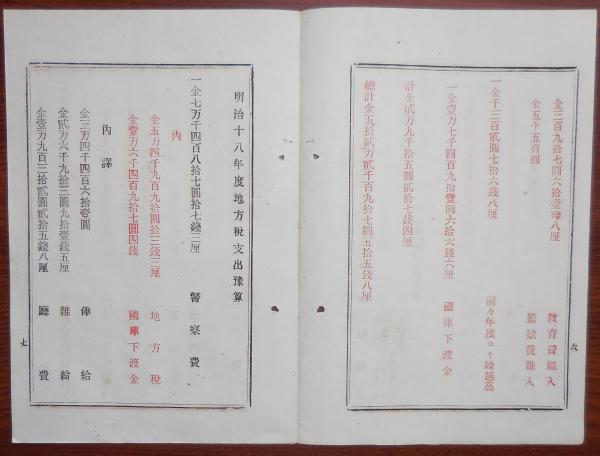 金三百九拾七圓六拾壹錢八厘 教育費雜入
金五千五百圓 監獄費雜入
一金千三百貳圓七拾六錢八厘 前々年度ヨリ繰越高
一金壹万七千四百九拾壹圓六拾六錢六厘 國庫下渡金
計金貳万九千拾五圓貳拾七錢四厘
總計金五拾貳万貳千百九拾七圓五拾五錢八厘
六
明治十八年度地方稅支出豫算
一金七万千四百八拾七圓拾七錢三厘 警察費
內
金五万四千九百九拾圓拾三錢三厘 地方稅
金壹万六千四百九拾七圓四錢 國庫下渡金
內譯
金三万四千四百六拾壹圓 俸給
金貳万六千九拾三圓九拾壹錢五厘 雜給
金壹万九百三拾貳圓貳拾五錢八厘 廳費
七